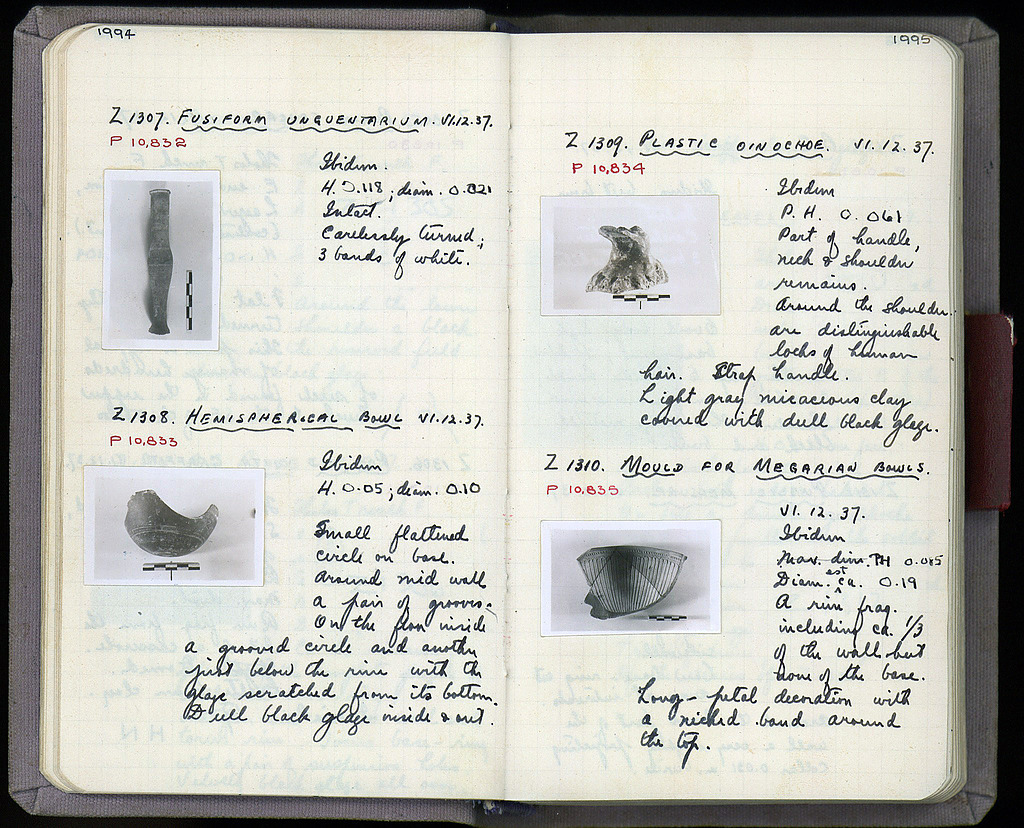 1994
Z 1307. FUSIFORM UNGUENTARIUM. VI.12.37.
P 10,832
Ibidem.
H. 0.118; diam. 0.021
Intact.
Carelessly turned;
3 bands of white.
Z 1308. HEMISPHERICAL BOWL VI.12.37.
P 10,833
Ibidem
H. 0.05; diam. 0.10
Small flattened
circle on base.
Around mid wall
a pair of grooves.
On the floor inside
a grooved circle and another
just below the rim with the
glaze scratched from its bottom.
Dull black glaze inside & out.
1995
Z 1309. PLASTIC OINOCHOE. VI.12.37.
P 10,834
Ibidem
P.H. 0.061
Part of handle,
neck & shoulder
remains.
Around the shoulder
are distinguishable
locks of human
hair. Strap handle.
Light gray micaceous clay
covered with dull black glaze.
Z 1310. MOULD FOR MEGARIAN BOWLS.
P 10,835
VI.12.37.
Ibidem
Max. dim. PH 0.085
Diam. est ca. 0.19
A rim frag.
including ca. 1/3
of the wall but
none of the base.
Long-petal decoration with
a niched band around
the top.